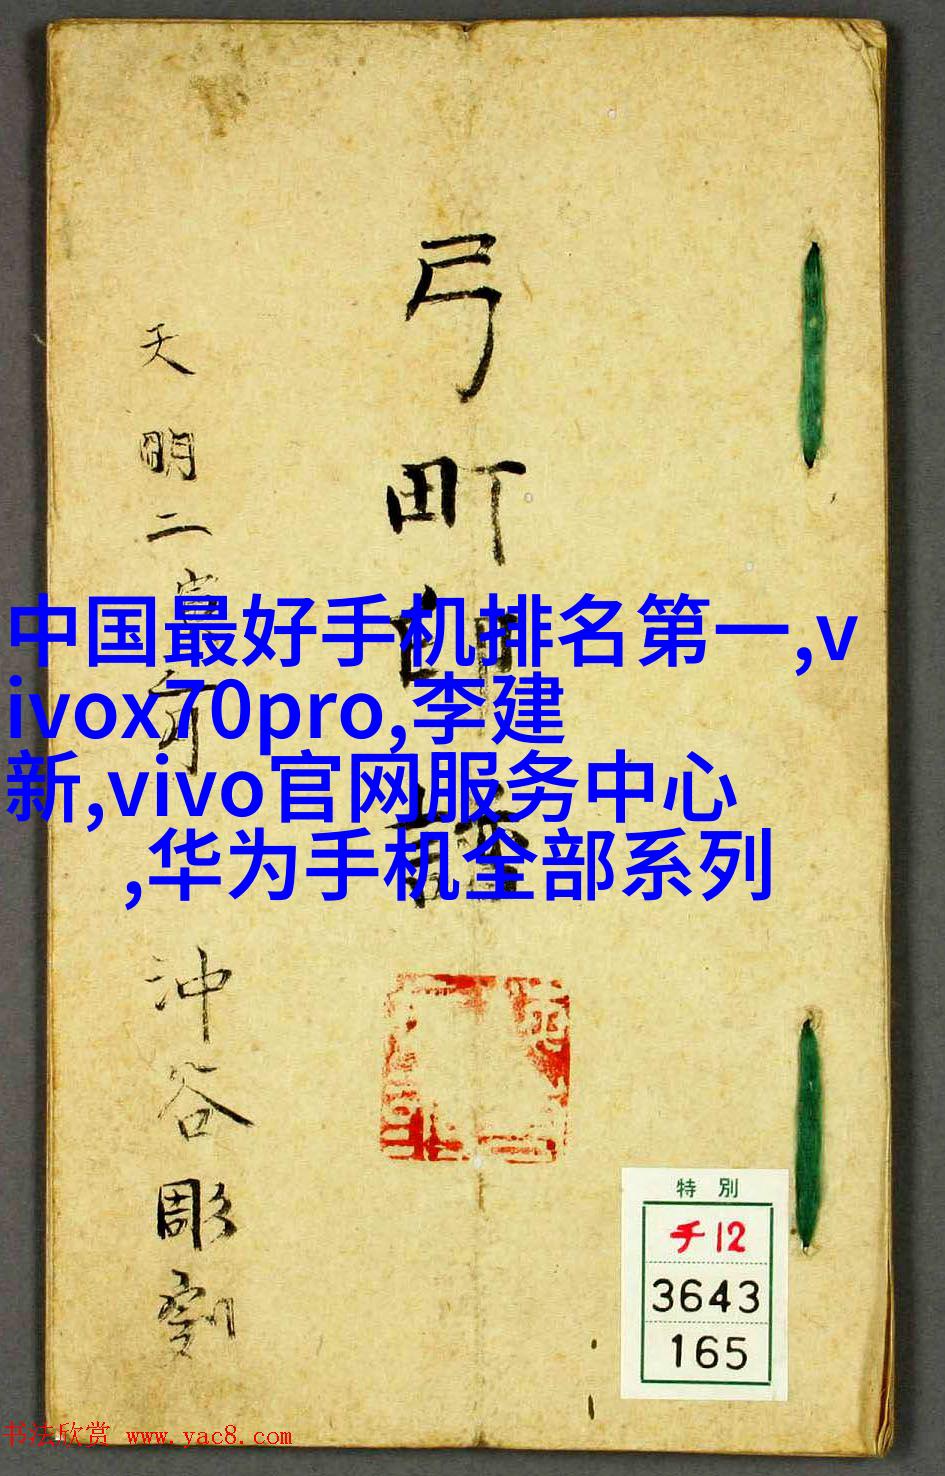 弓町印譜
天明二寅年
沖谷彫刻
中国最好手机排名第一,v
ivox70pro,李建
新,vivo官网服务中心
,华为手机全部系列
特別
チ12
3643
165
书法欣赏 www.yac8.com